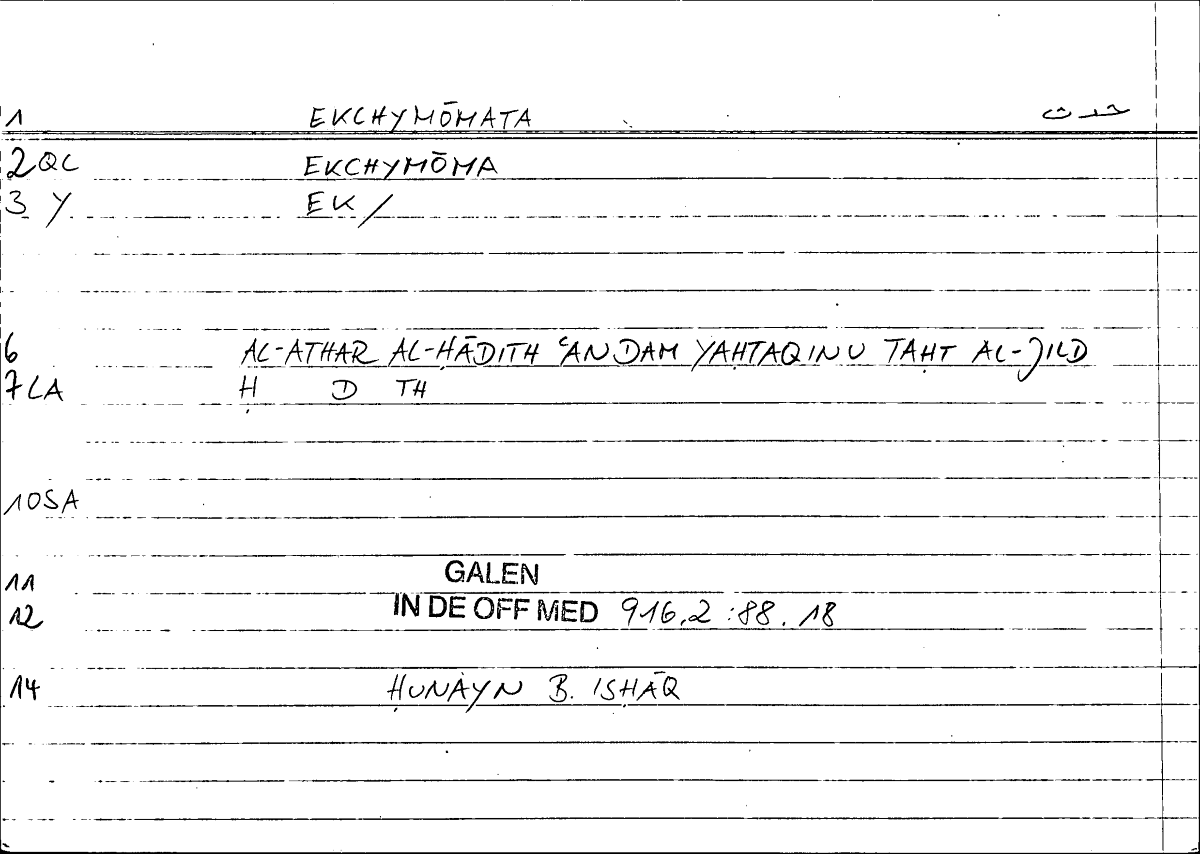 1 EKCHYMŌMATA حدث
2QC EKCHYMŌMA
3 Y EK/
6 AL-ATHAR AL-ḤĀDITH ʿAN DAM YAḤTAQINU TAḤT AL-JILD
7LA Ḥ D TH
10SA
11 GALEN
12 IN DE OFF MED 916.2:88.18
14 ḤUNAYN B. ISḤĀQ